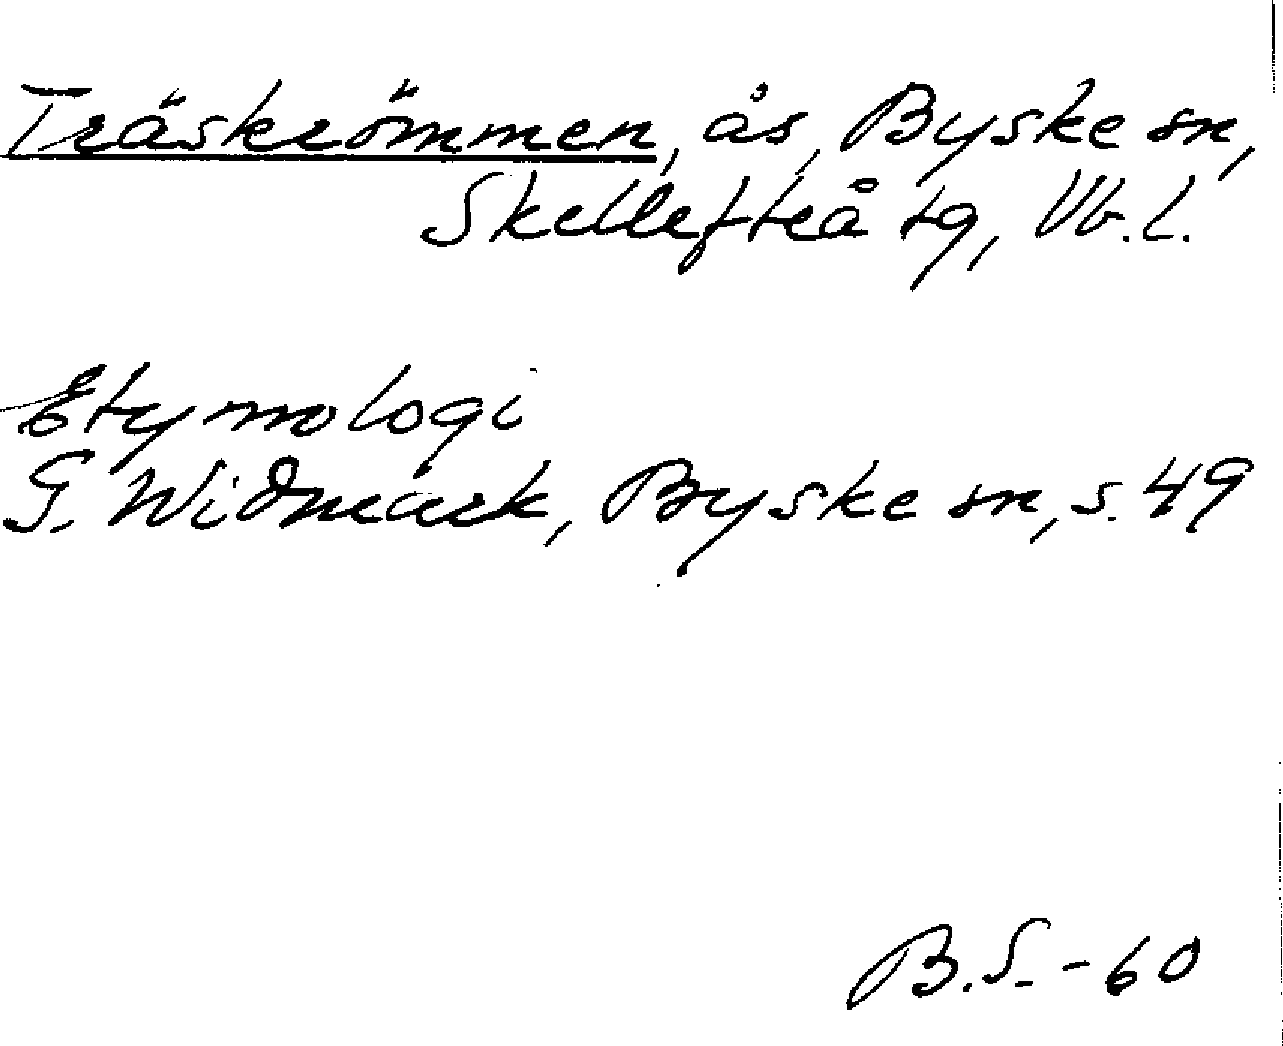 Träskrömmen, ås, Byske sn,
Skellefteå tg, Vb.l.
Etymologi
G. Widmark, Byske sn, s. 49
B.S. -60